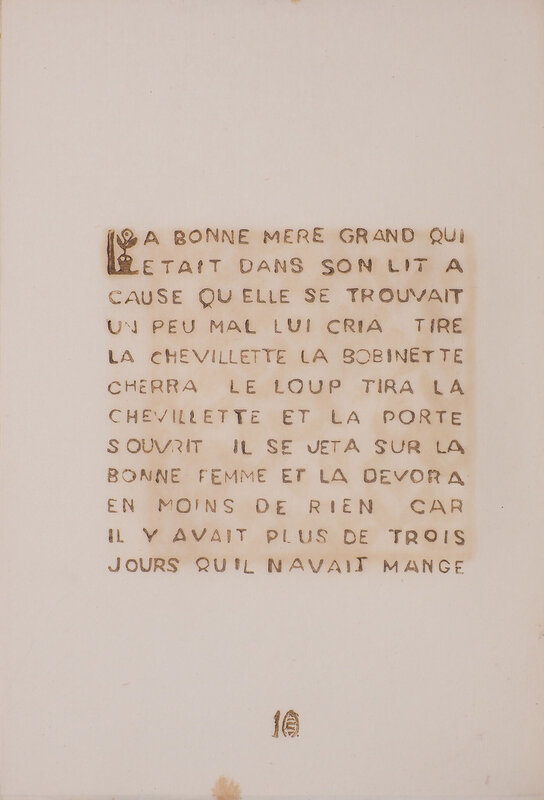 LA BONNE MERE GRAND QUI
ETAIT DANS SON LIT A
CAUSE QU ELLE SE TROUVAIT
UN PEU MAL LUI CRIA TIRE
LA CHEVILLETTE LA BOBINETTE
CHERRA LE LOUP TIRA LA
CHEVILLETTE ET LA PORTE
S OUVRIT IL SE JETA SUR LA
BONNE FEMME ET LA DEVORA
EN MOINS DE RIEN CAR
IL Y AVAIT PLUS DE TROIS
JOURS QU IL N AVAIT MANGE